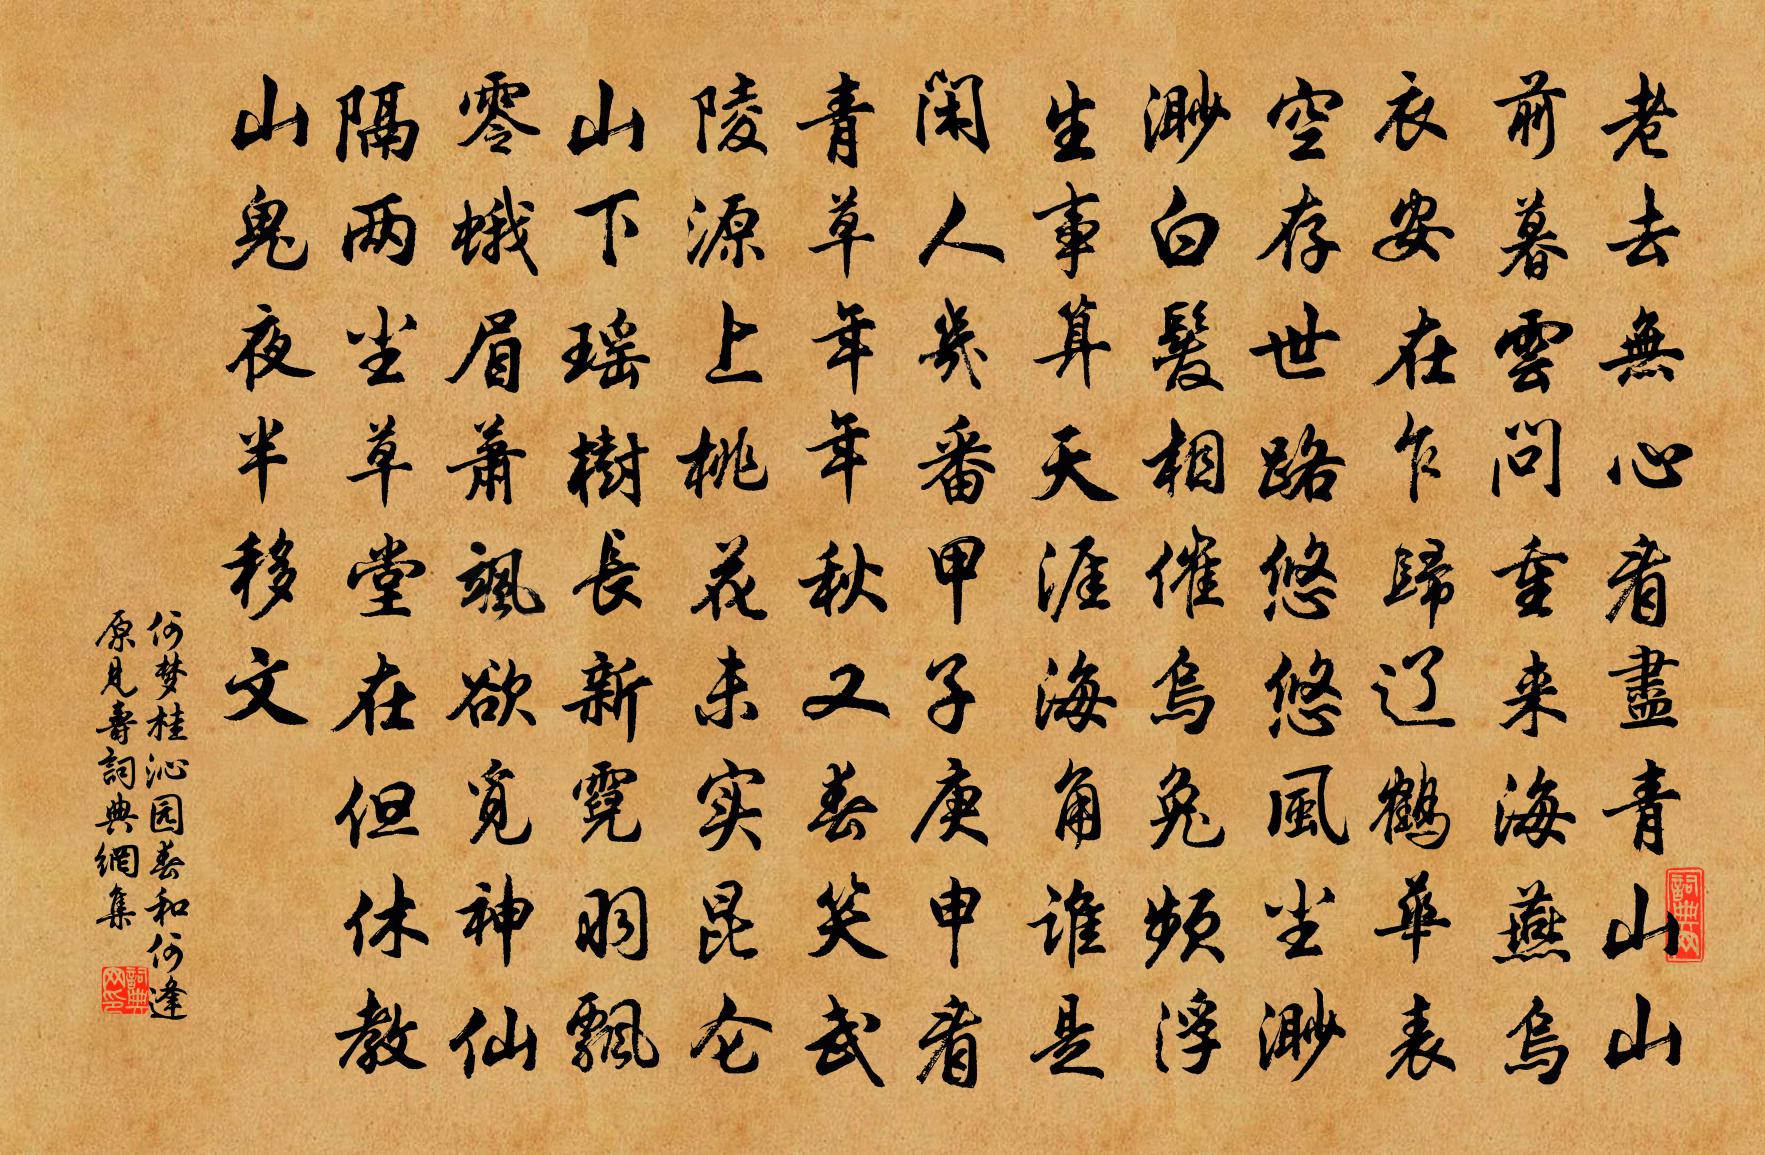 老去無心看盡青山山
前暮雲問重来海燕烏
衣安在乍歸辽鶴華表
空存世路悠悠風尘渺
渺白髮相催烏兔頻浮
生事算天涯海角誰是
閑人幾番甲子庚申看
青草年年秋又春笑武
陵源上桃花未实昆仑
山下瑶樹長新霓羽飄
零蛾眉萧颯欲覓神仙
隔兩尘草堂在但休教
山鬼夜半移文
何梦桂沁园春和何逢
原見壽詞典網集
詞典网
詞典网印